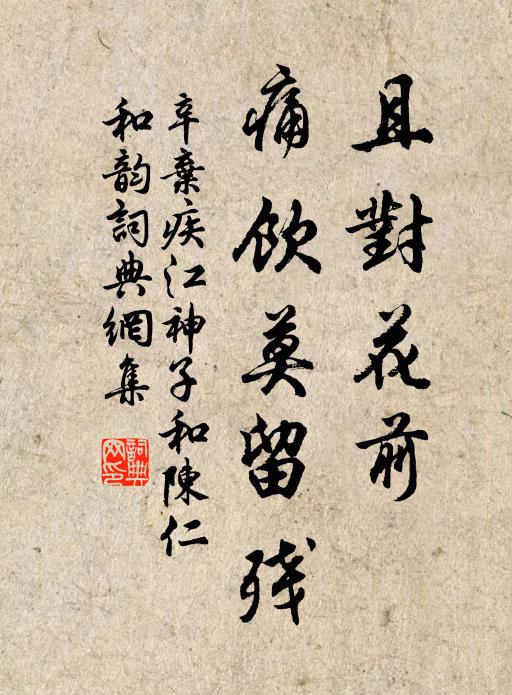 且對花前
痛飲莫留殘
辛棄疾江神子和陳仁
和韵詞典網集
詞典网印